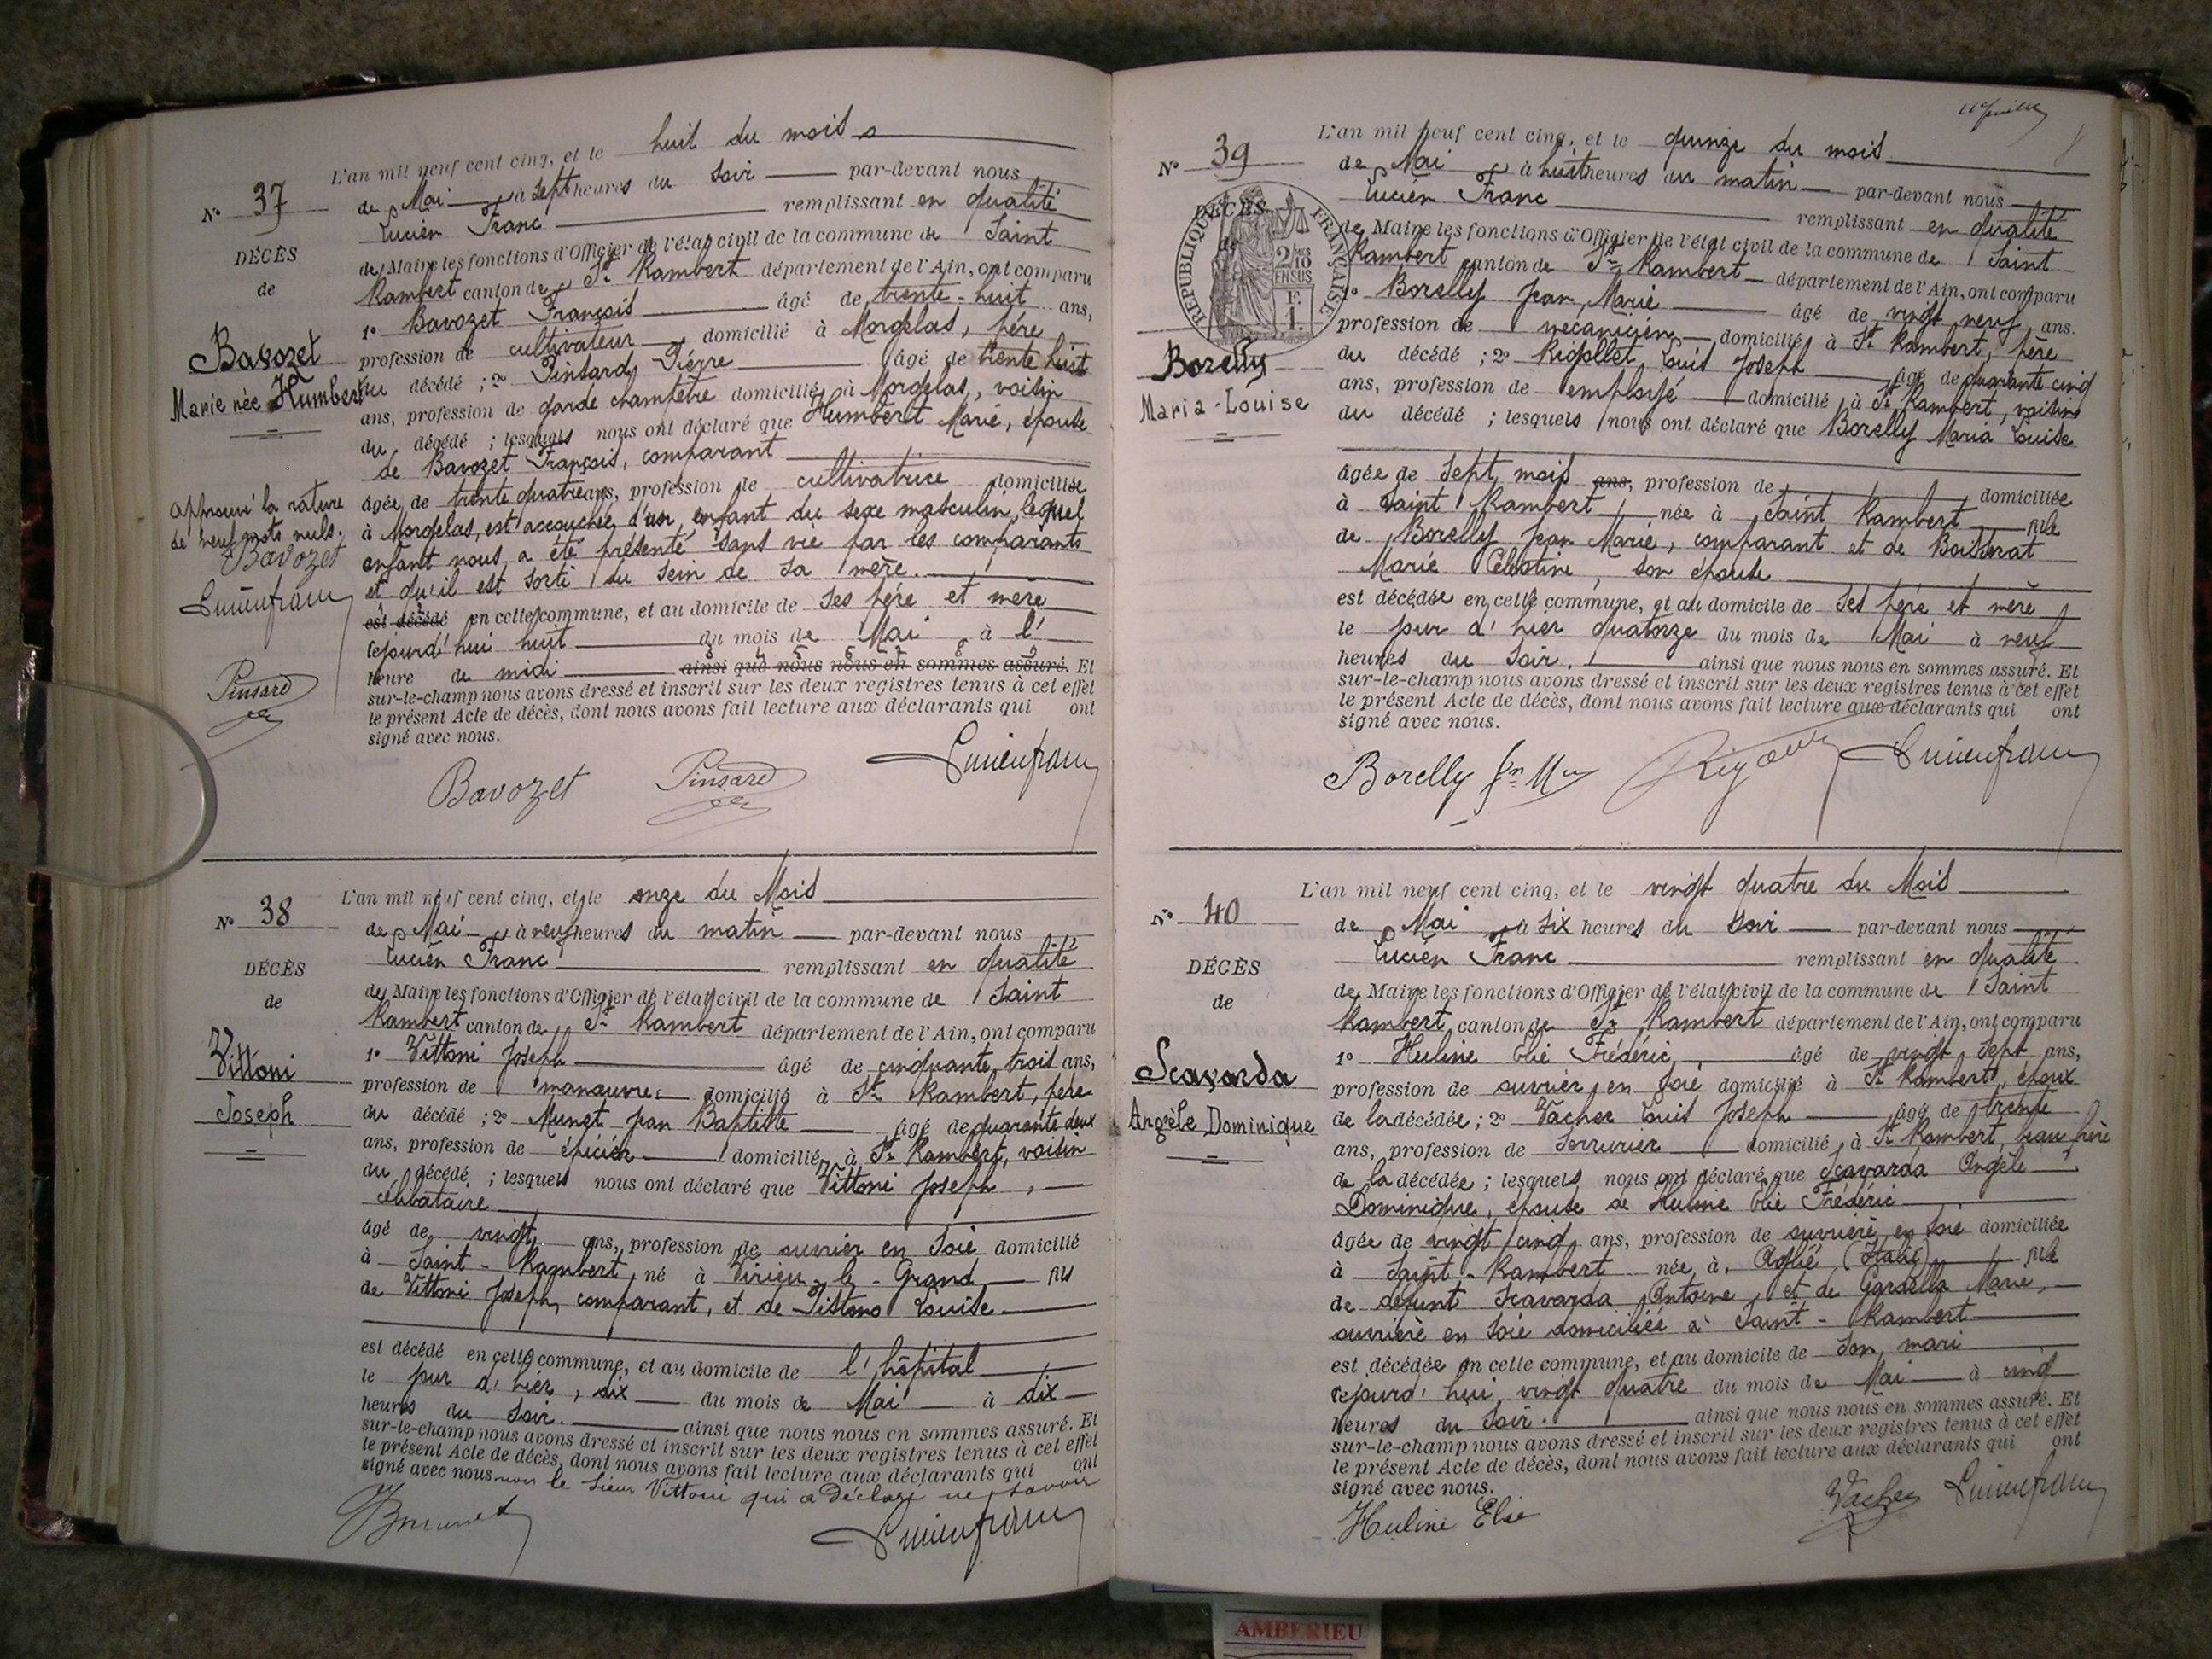 L'an mil neuf cent cinq, et le huit du mois
de Mai à Sept heures du Soir par-devant nous
Lucien Franc remplissant en qualité
de Maire les fonctions d'Officier de l'état civil de la commune de Saint
Rambert canton de St Rambert département de l'Ain, ont comparu
1° Bavozet François âgé de trente-huit ans,
profession de cultivateur domicilié à Morgelas, père
du décédé ; 2° Pinsard Pierre âgé de trente huit
ans, profession de garde champêtre domicilié à Morgelas, voisin
du décédé ; lesquels nous ont déclaré que Humbert Marie, épouse
de Bavozet François, comparant
âgée de trente quatre ans, profession de cultivatrice domiciliée
à Morgelas, est accouchée d'un enfant du sexe masculin, lequel
enfant nous a été présenté sans vie par les comparants
et qu'il est sorti du sein de sa mère.
est décédé en cette commune, et au domicile de Ses père et mère
cejourd'hui huit du mois de Mai à l'
heure de midi ainsi que nous nous en sommes assuré. Et
sur-le-champ nous avons dressé et inscrit sur les deux registres tenus à cet effet
le présent Acte de décès, dont nous avons fait lecture aux déclarants qui ont
signé avec nous.
Bavozet Pinsard Lucien franc
N° 37
DÉCÈS
de
Bavozet
Marie née Humbert
approuvé la rature
de neuf mots nuls.
Bavozet
Lucien franc
Pinsard
L'an mil neuf cent cinq, et le onze du Mois
de Mai à neuf heures du matin par-devant nous
Lucien Franc remplissant en qualité
de Maire les fonctions d'Officier de l'état civil de la commune de Saint
Rambert canton de St Rambert département de l'Ain, ont comparu
1° Vittoni Joseph âgé de cinquante trois ans,
profession de manœuvre domicilié à St Rambert, père
du décédé ; 2° Munet Jean Baptiste âgé de quarante deux
ans, profession de épicier domicilié à St Rambert, voisin
du décédé ; lesquels nous ont déclaré que Vittoni Joseph,
célibataire
âgé de vingt ans, profession de ouvrier en Soie domicilié
à Saint-Rambert, né à Virieu-le-Grand fils
de Vittoni Joseph, comparant, et de Louise
est décédé en cette commune, et au domicile de l'hôpital
le jour d'hier, dix du mois de Mai à dix
heures du Soir. ainsi que nous nous en sommes assuré. Et
sur-le-champ nous avons dressé et inscrit sur les deux registres tenus à cet effet
le présent Acte de décès, dont nous avons fait lecture aux déclarants qui ont
signé avec nous non le Sieur Vittoni qui a déclaré ne savoir
Lucien franc
N° 38
DÉCÈS
de
Vittoni
Joseph
L'an mil neuf cent cinq, et le quinze du mois
de Mai à huit heures du matin par-devant nous
Lucien Franc remplissant en qualité
de Maire les fonctions d'Officier de l'état civil de la commune de Saint
Rambert canton de St Rambert département de l'Ain, ont comparu
1° Borelly Jean Marie âgé de vingt neuf ans.
profession de mécanicien domicilié à St Rambert, père
du décédé ; 2° Rigollet Louis Joseph âgé de quarante cinq
ans, profession de employé domicilié à St Rambert, voisin
du décédé ; lesquels nous ont déclaré que Borelly Maria Louise
âgée de Sept mois ans, profession de domiciliée
à Saint Rambert née à Saint Rambert fille
de Borelly Jean Marie, comparant et de
Marie Célestine, son épouse
est décédée en cette commune, et au domicile de Ses père et mère
le jour d'hier quatorze du mois de Mai à neuf
heures du Soir. ainsi que nous nous en sommes assuré. Et
sur-le-champ nous avons dressé et inscrit sur les deux registres tenus à cet effet
le présent Acte de décès, dont nous avons fait lecture aux déclarants qui ont
signé avec nous.
Borelly Jn Mie Lucien franc
N° 39
DÉCÈS
de
RÉPUBLIQUE FRANÇAISE
2/10 EN SUS
Borelly
Maria-Louise
L'an mil neuf cent cinq, et le vingt quatre du Mois
de Mai à Six heures du Soir par-devant nous
Lucien Franc remplissant en qualité
de Maire les fonctions d'Officier de l'état civil de la commune de Saint
Rambert, canton de St Rambert département de l'Ain, ont comparu
1° Huline Elie Frédéric, âgé de vingt Sept ans,
profession de ouvrier en Soie domicilié à St Rambert, époux
de la décédée ; 2° Vacher Louis Joseph âgé de trente
ans, profession de Serrurier domicilié à St Rambert, beau frère
de la décédée ; lesquels nous ont déclaré que Scavarda Angèle
Dominique, épouse de Huline Elie Frédéric
âgée de vingt cinq ans, profession de ouvrière en Soie domiciliée
à Saint-Rambert née à Aglié (Italie) fille
de défunt Scavarda Antoine, et de Gardella Marie,
ouvrière en Soie domiciliée à Saint-Rambert
est décédée en cette commune, et au domicile de Son mari
cejourd'hui vingt quatre du mois de Mai à cinq
heures du Soir. ainsi que nous nous en sommes assuré. Et
sur-le-champ nous avons dressé et inscrit sur les deux registres tenus à cet effet
le présent Acte de décès, dont nous avons fait lecture aux déclarants qui ont
signé avec nous.
Huline Elie Vacher Lucien franc
N° 40
DÉCÈS
de
Scavarda
Angèle Dominique
AMBERIEU